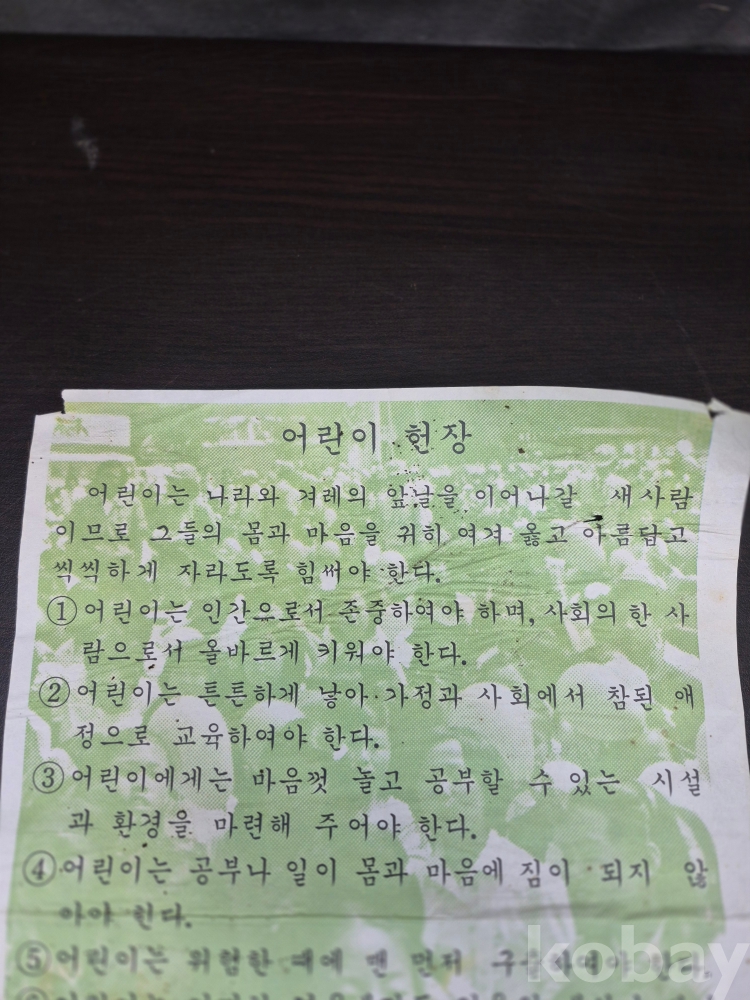 어린이 헌장
어린이는 나라와 겨레의 앞날을 이어나갈 새사람
이므로 그들의 몸과 마음을 귀히 여겨 옳고 아름답고
씩씩하게 자라도록 힘써야 한다.
① 어린이는 인간으로서 존중하여야 하며, 사회의 한 사
람으로서 올바르게 키워야 한다.
② 어린이는 튼튼하게 낳아 가정과 사회에서 참된 애
정으로 교육하여야 한다.
③ 어린이에게는 마음껏 놀고 공부할 수 있는 시설
과 환경을 마련해 주어야 한다.
④ 어린이는 공부나 일이 몸과 마음에 짐이 되지 않
아야 한다.
⑤ 어린이는 위험한 때에 맨 먼저 구출하여야 한다.
kobay